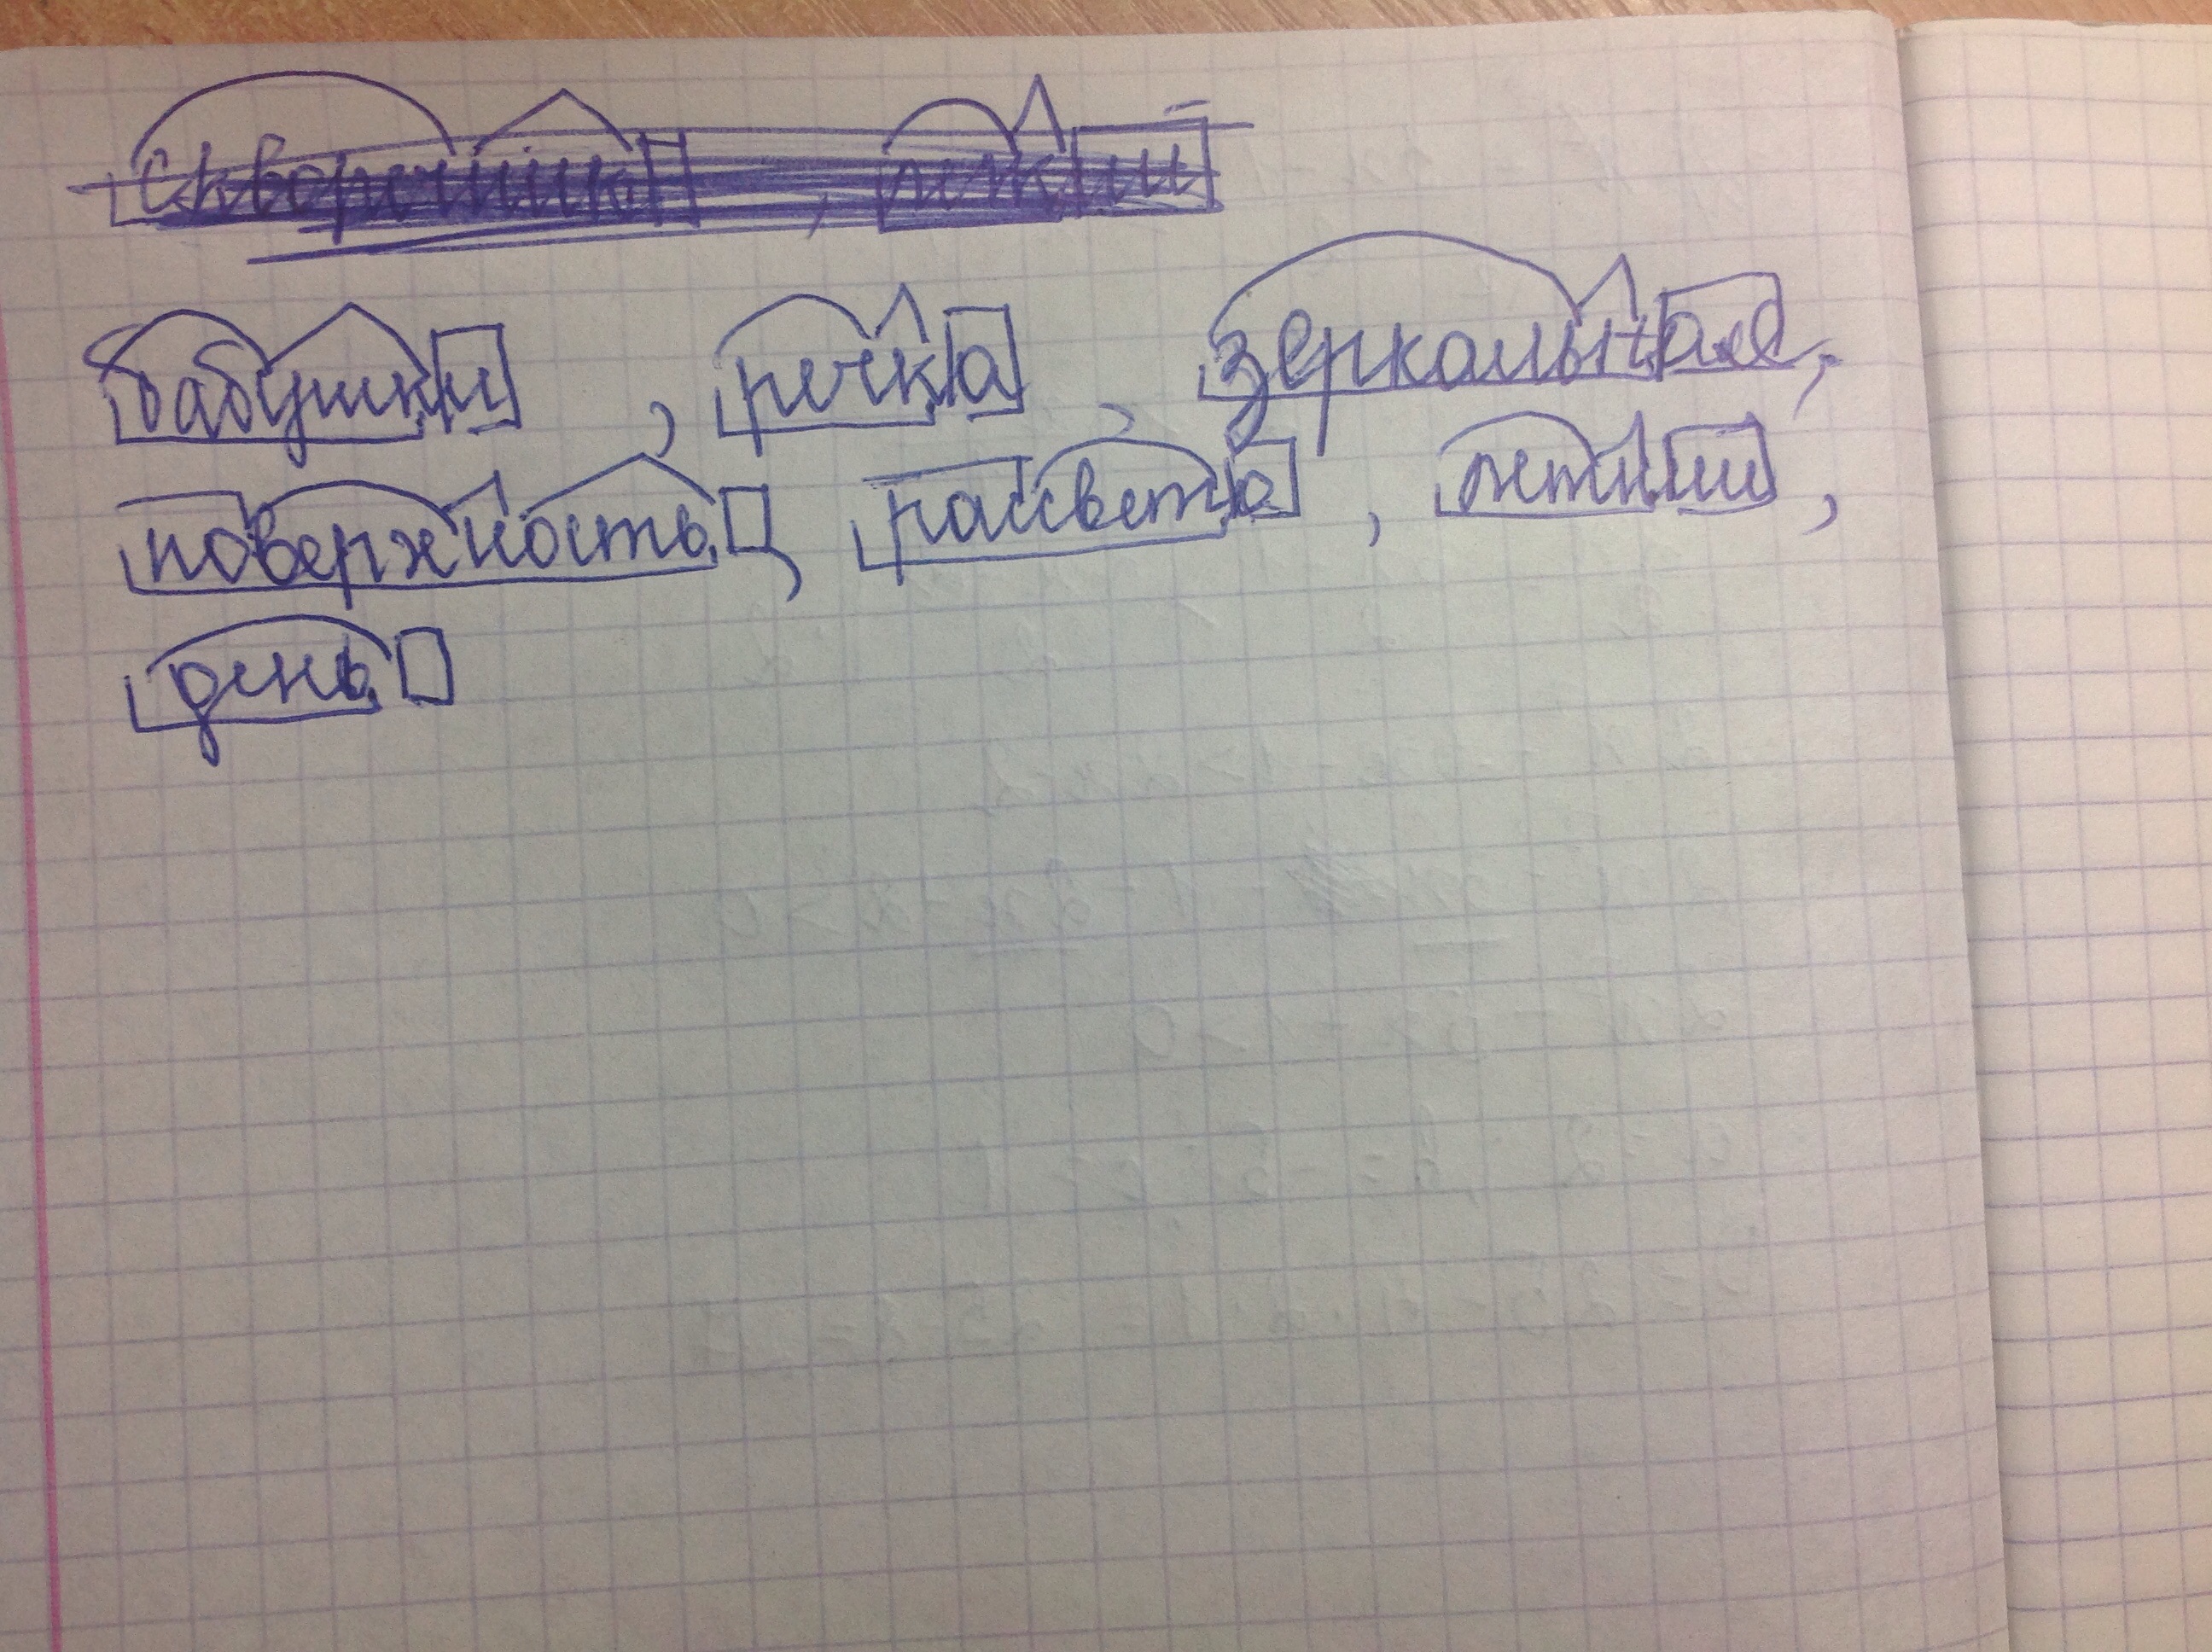 скворечник, легкий
бабушки, речка, зеркальная,
поверхность, рассвета, летний,
день